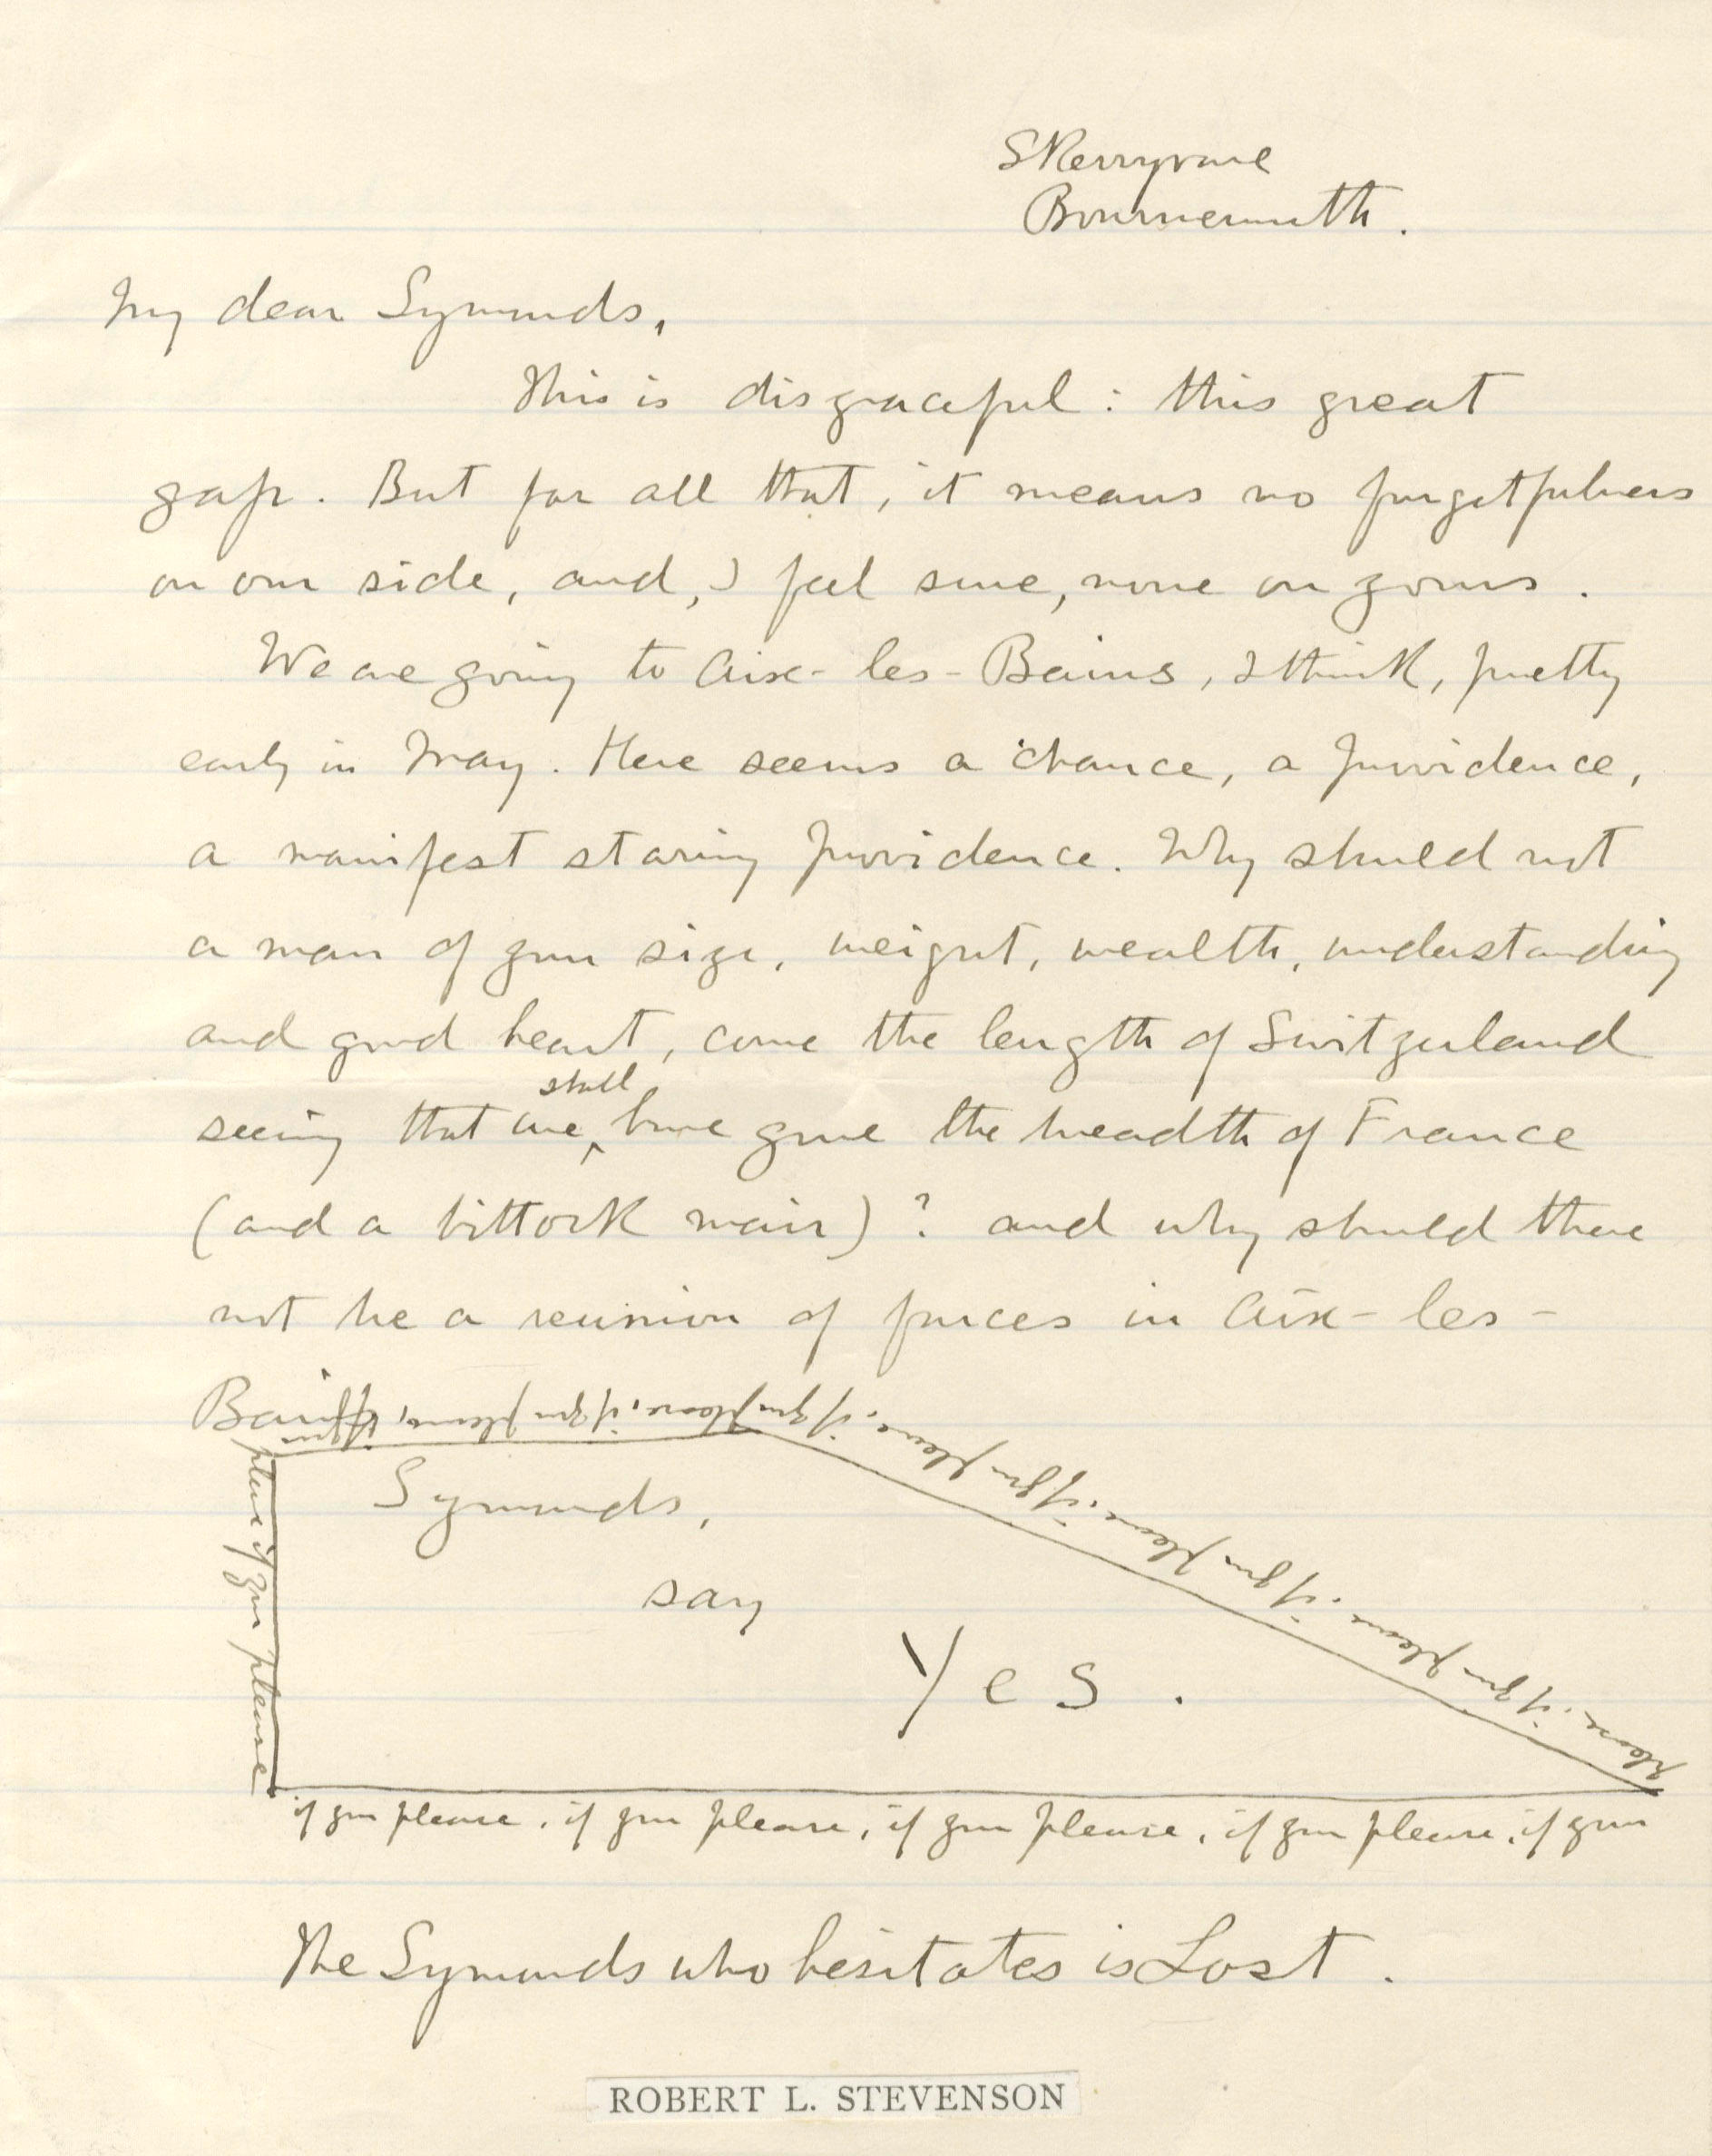 Skerryvore
Bournemouth.
My dear Symonds,
This is disgraceful: this great
gap. But for all that, it means no forgetfulness
on our side, and, I feel sure, none on yours.
We are going to Aix-les-Bains, I think, pretty
early in May. Here seems a chance, a Providence,
a manifest staring Providence. Why should not
a man of your size, weight, wealth, understanding
and good heart, come the length of Switzerland
seeing that we shall have gone the breadth of France
(and a bittock mair)? and why should there
not be a reunion of forces in Aix-les-
Bains?
Symonds,
say
Yes.
if you please, if you please, if you please, if you please, if you
please, if you please, if you please, if you please, if you please, if you please, if you
please if you please
The Symonds who hesitates is Lost.
ROBERT L. STEVENSON